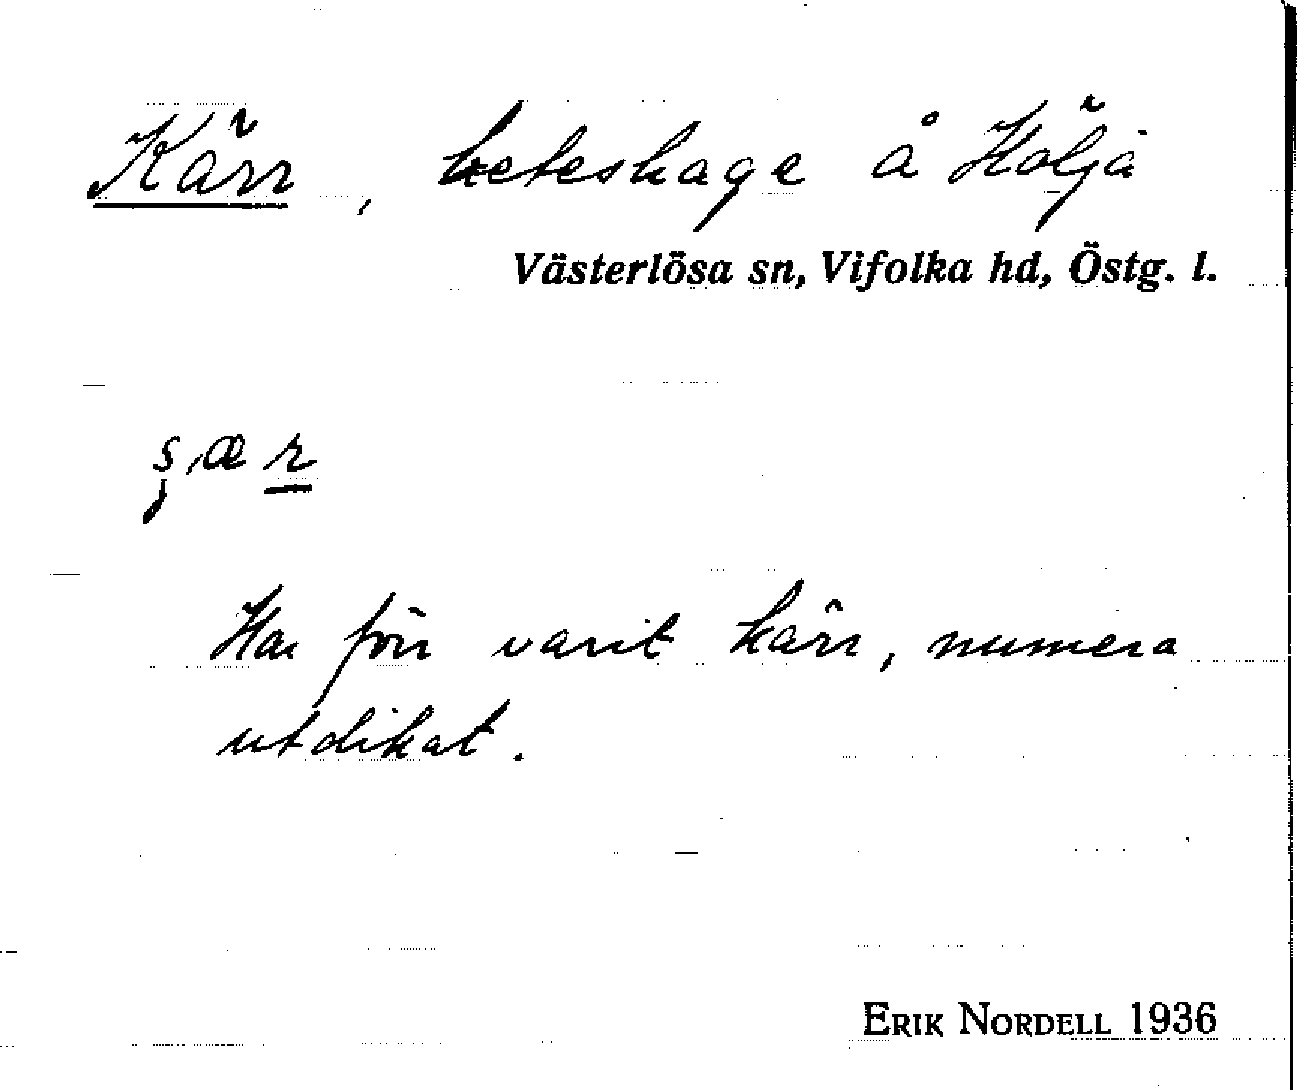 Kärr, beteshage å Kölja
Västerlösa sn, Vifolka hd, Östg. l.
Har förr varit kärr, numera
utdikat.
ERIK NORDELL 1936